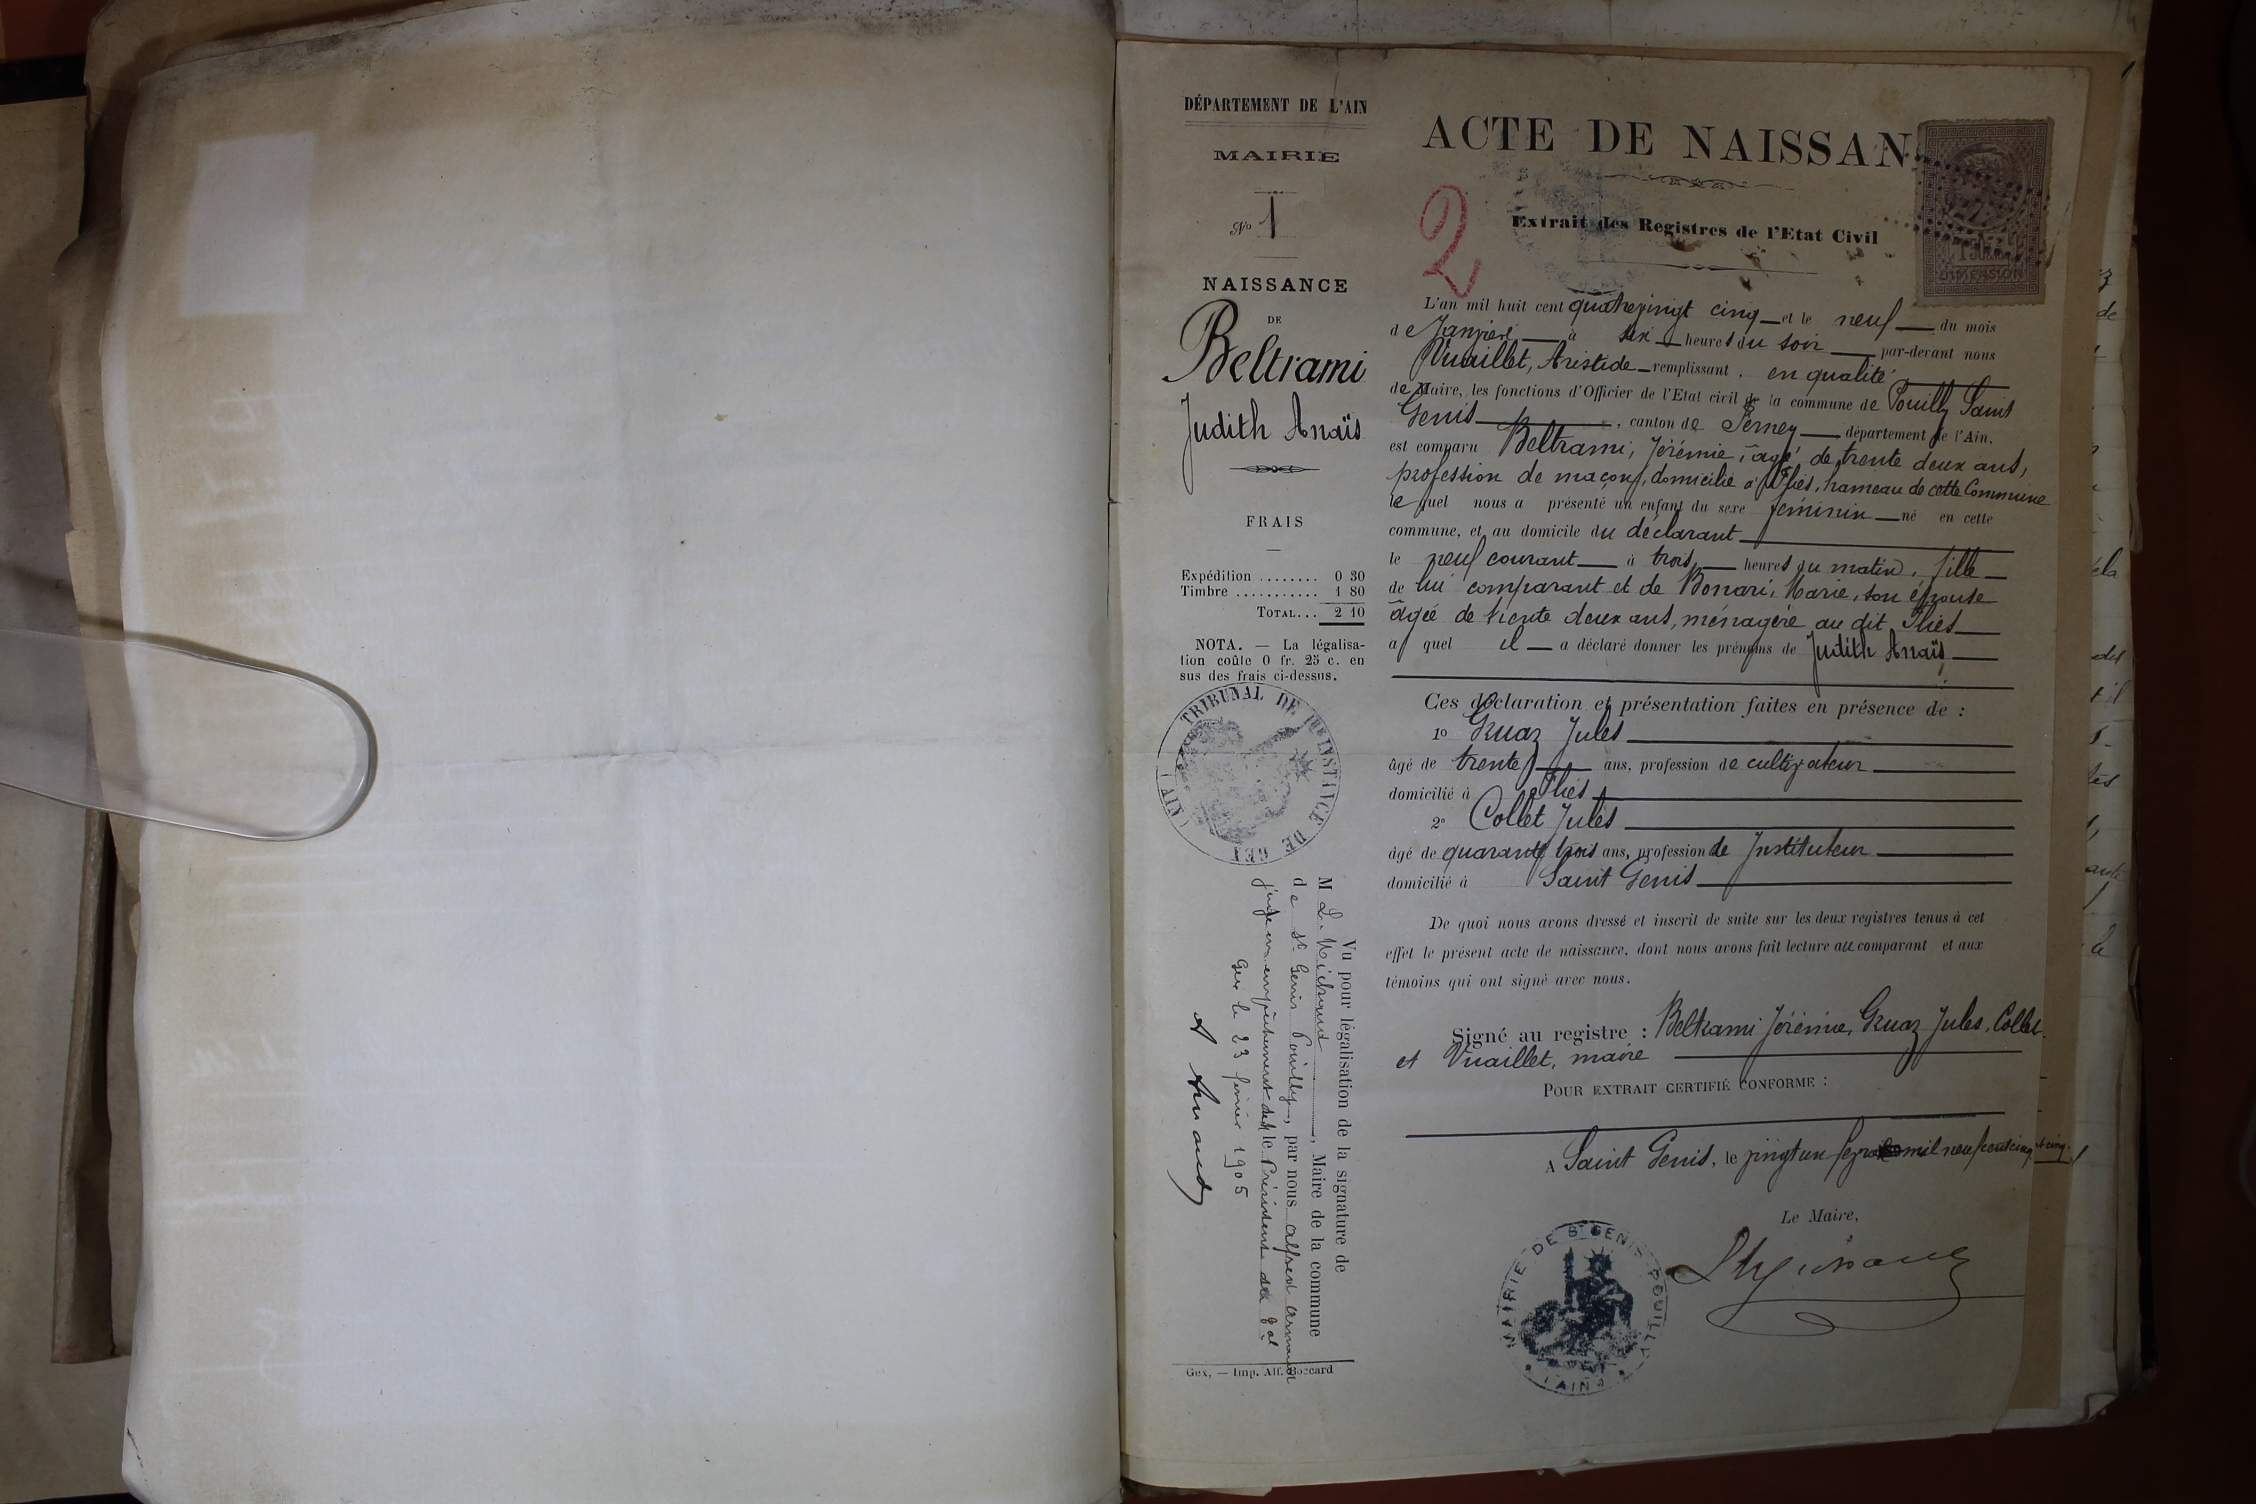 DÉPARTEMENT DE L'AIN
MAIRIE
No 1
NAISSANCE
DE
Beltrami
Judith Anaïs
FRAIS
Expédition ........ 0 30
Timbre ........... 1 80
TOTAL... 2 10
NOTA. — La légalisa-
tion coûte 0 fr. 25 c. en
sus des frais ci-dessus.
TRIBUNAL DE 1re INSTANCE DE GEX (AIN)
Vu pour légalisation de la signature de
M L. Michaud, Maire de la commune
de St Genis Pouilly, par nous alfred armand
juge en empêchement de le Président du
Gex le 23 février 1905
A Armand
Gex, — Imp. Alf. Boccard
ACTE DE NAISSAN
2
Extrait des Registres de l'Etat Civil
DIMENSION
L'an mil huit cent quatrevingt cinq et le neuf du mois
de Janvier à six heures du soir par-devant nous
Vuaillet, Aristide remplissant en qualité
de Maire, les fonctions d'Officier de l'Etat civil de la commune de Pouilly Saint
Genis, canton de Ferney département de l'Ain.
est comparu Beltrami, Jérémie, âgé de trente deux ans,
profession de maçon, domicilié à Flies, hameau de cette Commune
le quel nous a présenté un enfant du sexe féminin né en cette
commune, et au domicile du déclarant
le neuf courant à trois heures du matin, fille
de lui comparant et de Bonari, Marie, son épouse
âgée de trente deux ans, ménagère au dit Flies
a quel il a déclaré donner les prénoms de Judith Anaïs
Ces déclaration et présentation faites en présence de :
1o Gruaz Jules
âgé de trente ans, profession de cultivateur
domicilié à Flies
2o Collet Jules
âgé de quarante trois ans, profession de Instituteur
domicilié à Saint Genis
De quoi nous avons dressé et inscrit de suite sur les deux registres tenus à cet
effet le présent acte de naissance, dont nous avons fait lecture au comparant et aux
témoins qui ont signé avec nous.
Signé au registre : Beltrami Jérémie, Gruaz Jules, Collet
et Vuaillet, maire
POUR EXTRAIT CERTIFIÉ CONFORME :
A Saint Genis, le vingt un mil neuf cent cinq
Le Maire,
MAIRIE DE St GENIS-POUILLY
(AIN)